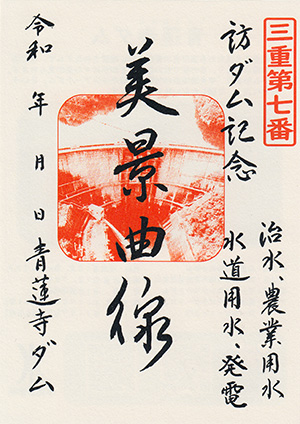 三重第七番
訪ダム記念
治水、農業用水
水道用水、発電
美景曲線
令和 年 月 日
青蓮寺ダム